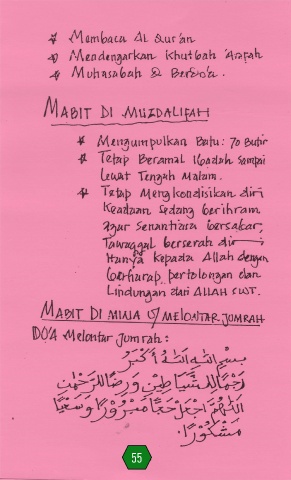 * Membaca Al Qur'an
* Mendengarkan Khutbah 'Arafah
* Muhasabah & Berdo'a.
MABIT DI MUZDALIFAH
* Mengumpulkan Batu: 70 Butir
* Tetap Beramal Ibadah Sampai
Lewat Tengah Malam.
* Tetap Mengkondisikan diri
Keadaan Sedang berihram
agar senantiasa bersabar,
Tawaqqal berserah diri
Hanya kepada Allah dengan
berharap pertolongan dan
Lindungan dari ALLAH SWT.
MABIT DI MINA U/ MELONTAR JUMRAH
DO'A Melontar Jumrah:
بِسْمِ اللهِ اَللهُ اَكْبَرُ
رَجْمًا لِلشَّيَاطِيْنِ وَرِضًا لِلرَّحْمٰنِ
اَللّٰهُمَّ اجْعَلْ حَجًّا مَبْرُوْرًا وَسَعْيًا
مَشْكُوْرًا.
55